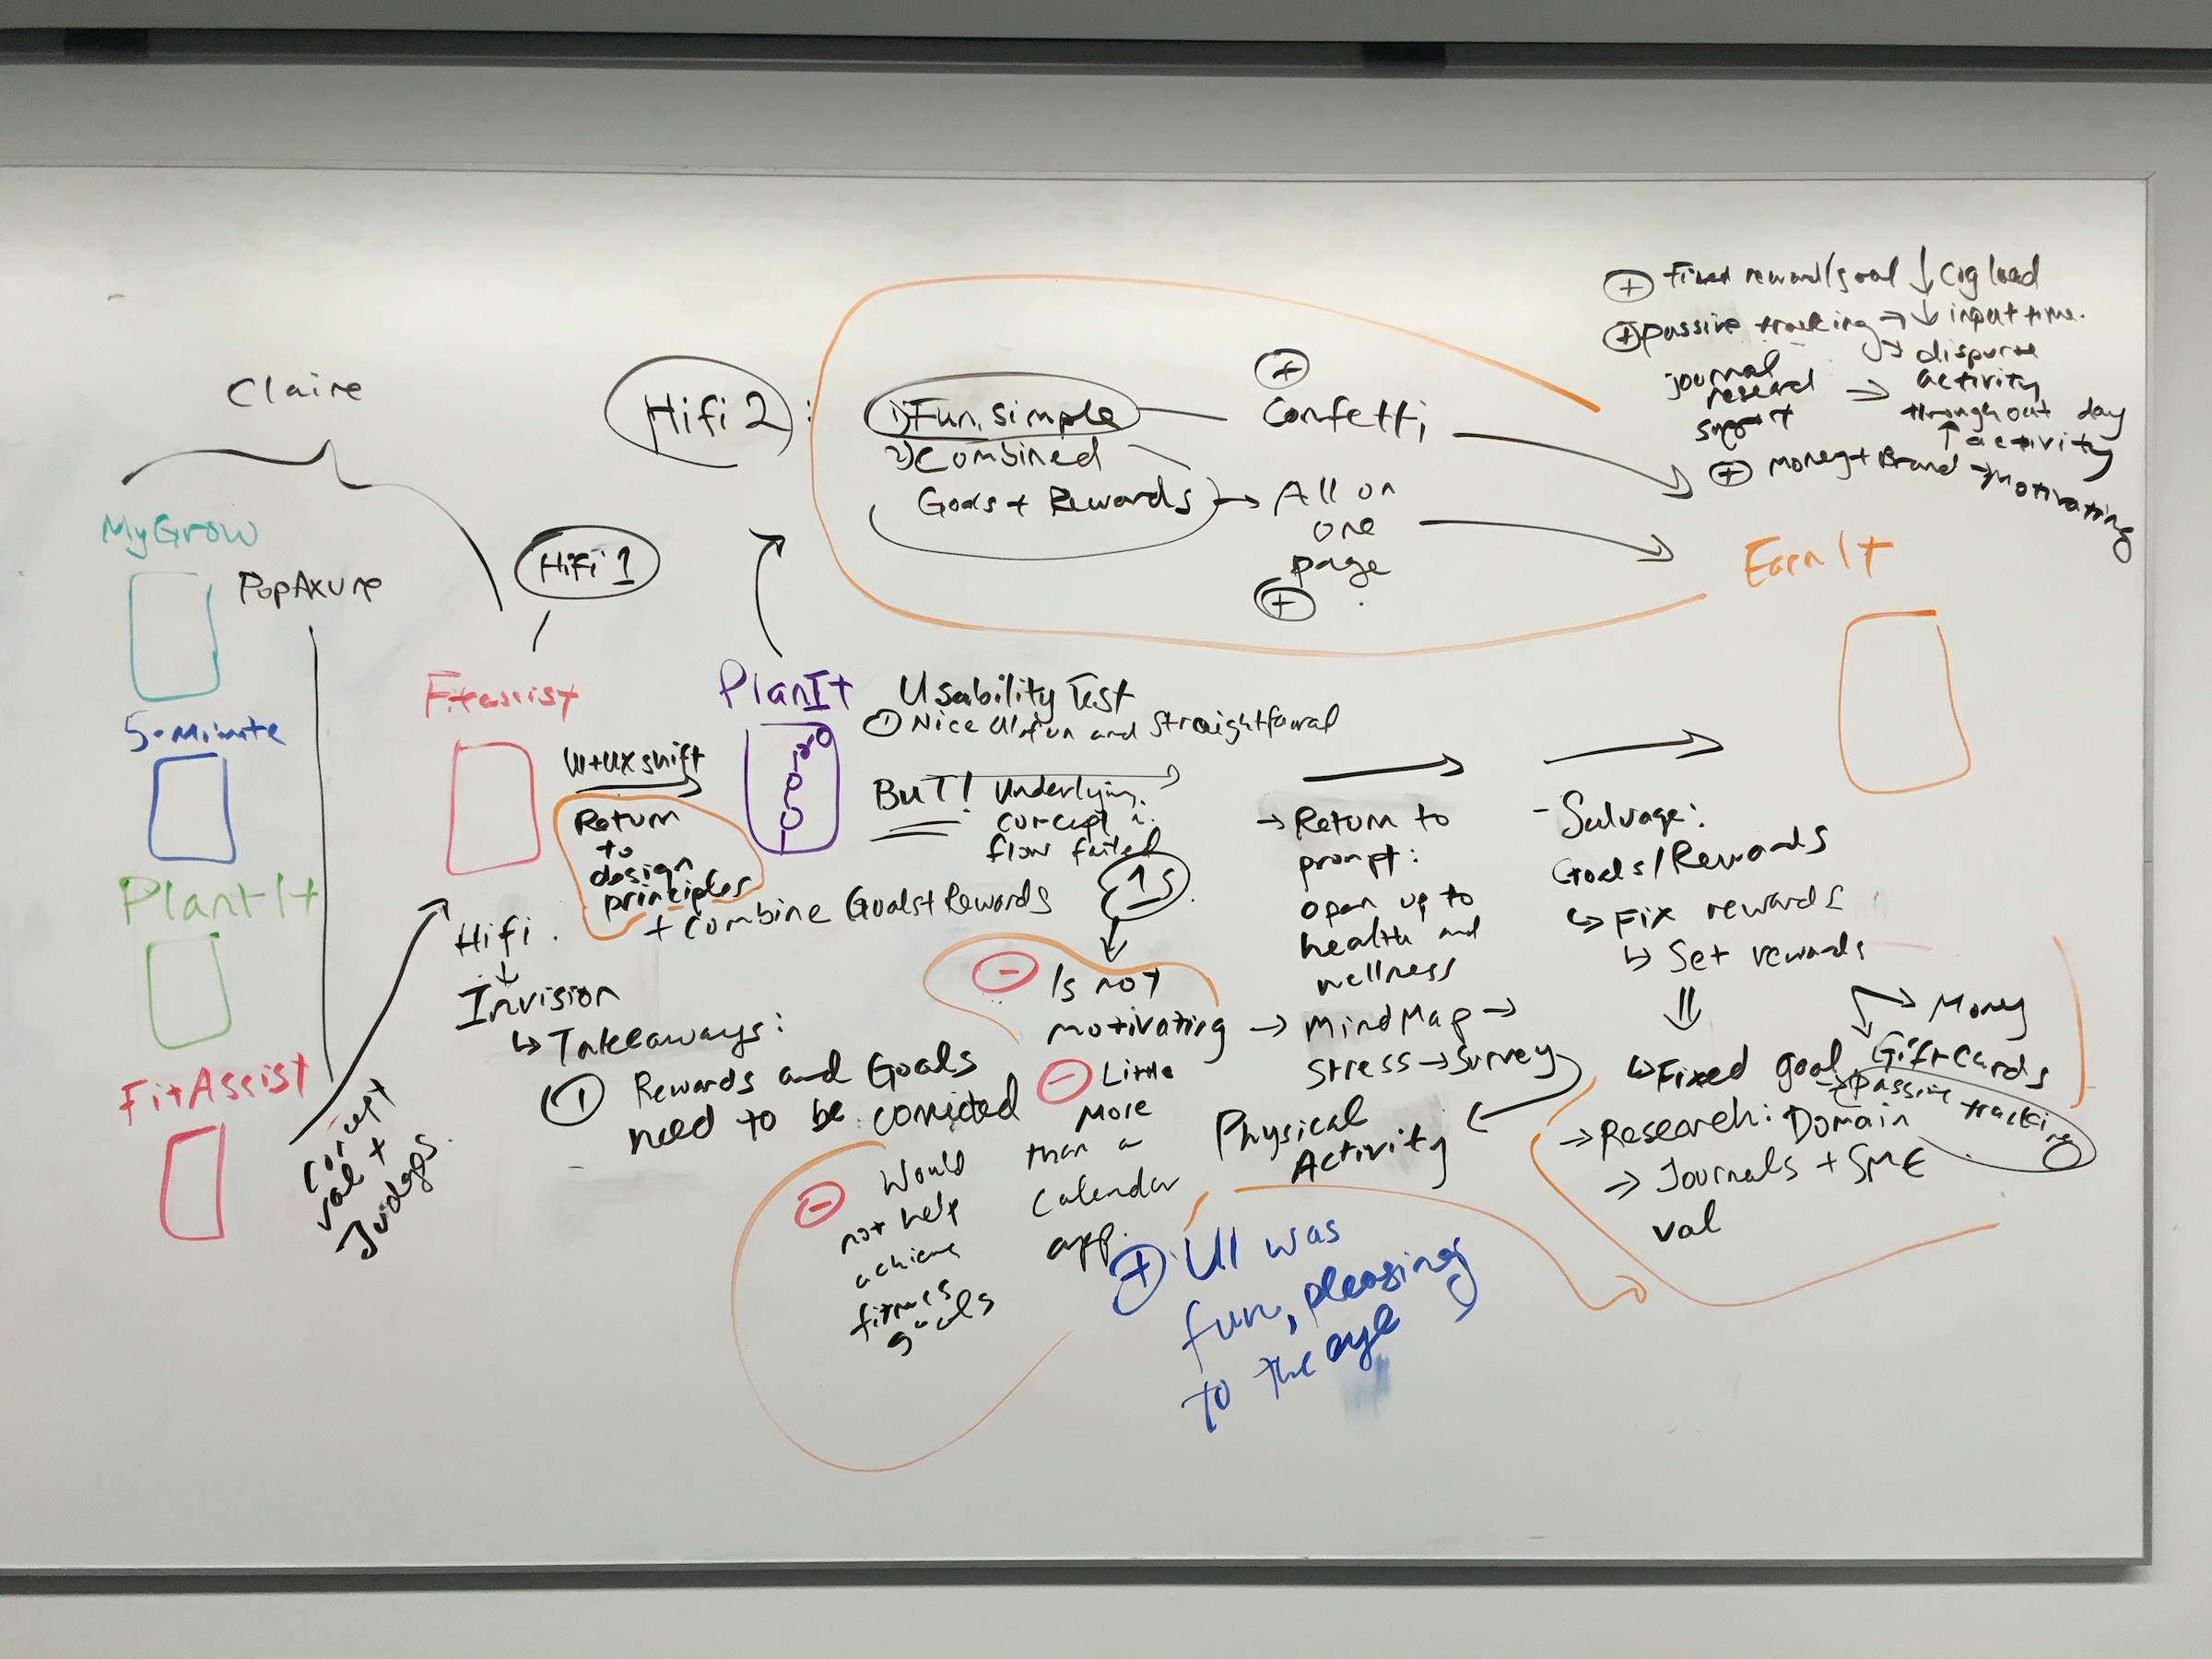 Claire
MyGrow
PopAxure
5-Minute
PlantIt
FitAssist
Concept
val +
Judges.
Hifi 1
Fitassist
Hifi.
Invision
↳ Takeaways:
① Rewards and Goals
need to be
UI+UX shift
Return
to
design
principles
+ Combine Goals+Rewards
Hifi 2:
1) Fun, simple
2) Combined
Goals + Rewards
+
Confetti
→ All on
one
page
+
PlanIt
Usability Test
① Nice UI, fun and
BUT!
Underlying
concept
flow failed
1s
- Is not
motivating
- Little
more
than a
calendar
app.
- Would
not help
achieve
fitness
goals
+ UI was
fun, pleasing
to the eye
→ Return to
prompt:
open up to
health and
wellness
→ MindMap →
Stress → Survey
Physical
Activity
- Salvage:
Goals/Rewards
↳ Fix rewards
↳ Set rewards
→ Money
Giftcards
↳ Fixed goal
→ passive tracking
→ Research: Domain
→ Journals + SME
val
+ Fixed reward/goal ↓ Cog load
+ passive tracking → ↓ input time.
journal
research
support
→ disperse
activity
throughout day
↑ activity
+ money + Brand → motivating
EarnIt